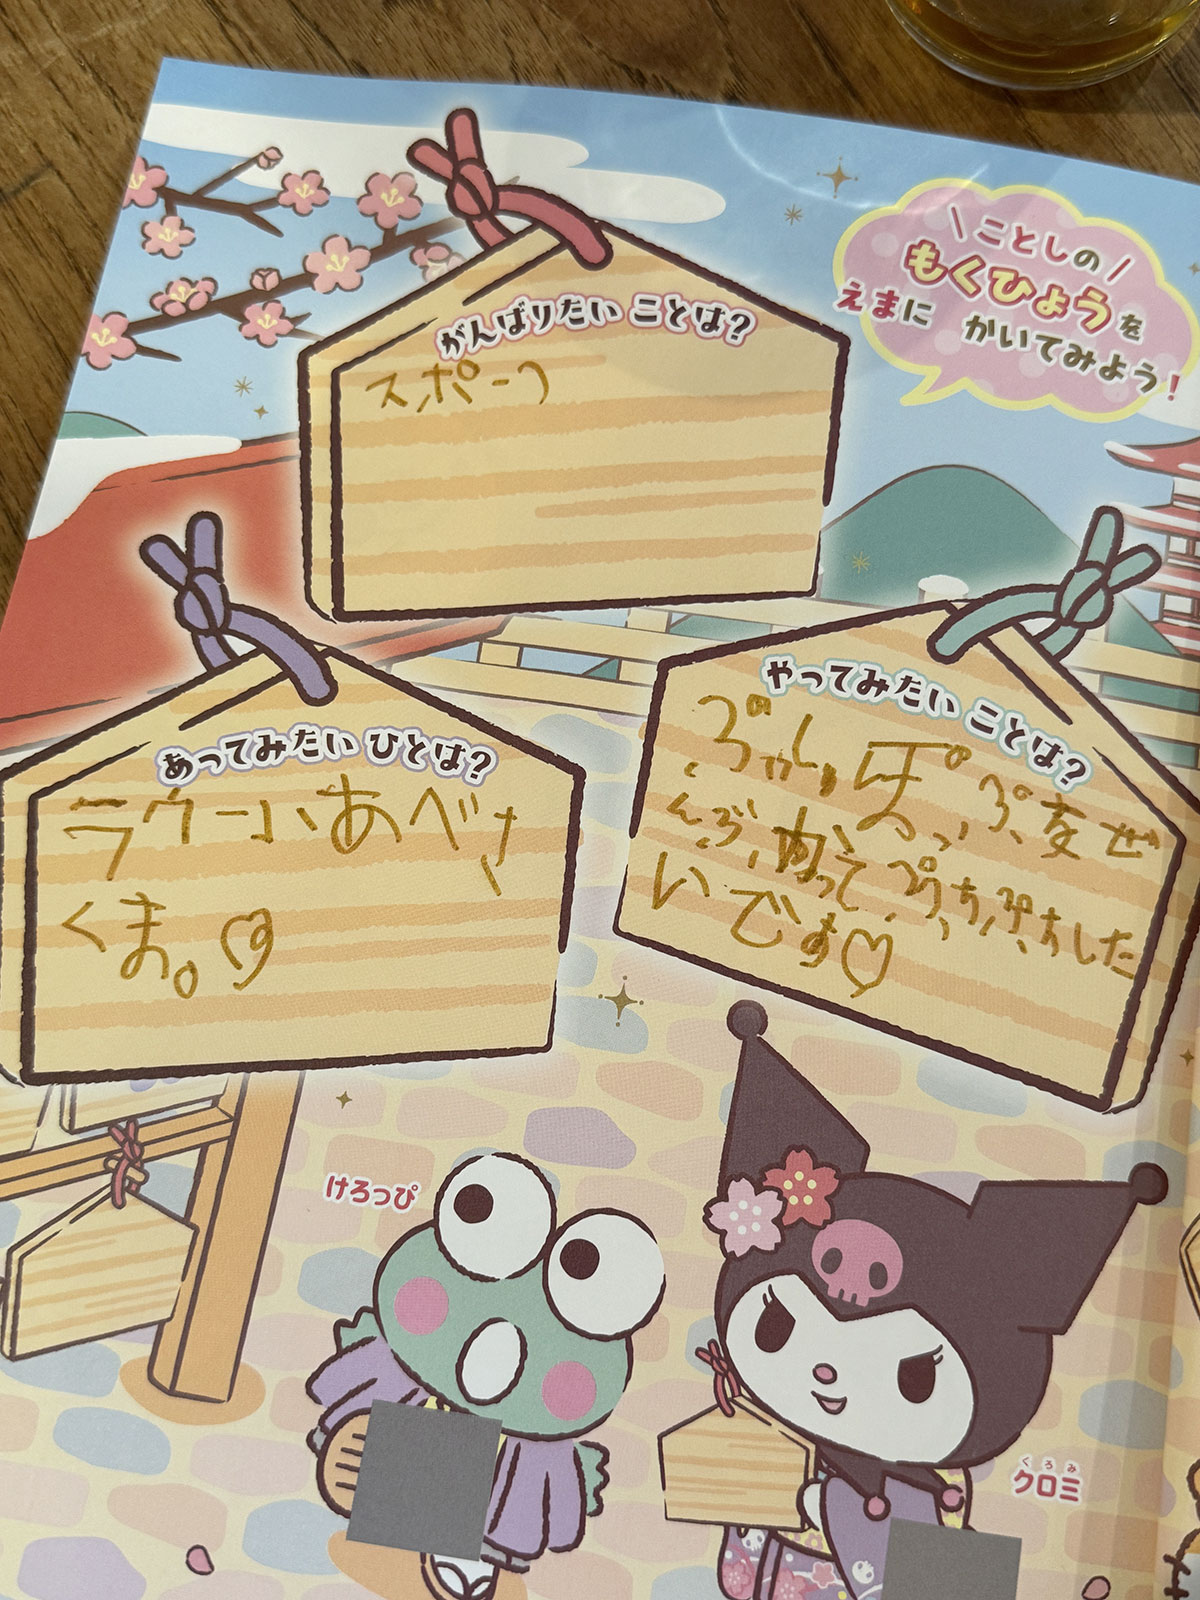 ことしの
もくひょうを
えまに かいてみよう!
がんばりたい ことは?
スポーツ
あってみたい ひとは?
ラウールあべさ
くま。♡
やってみたい ことは?
ぷっしゅぽっぷをぜ
んぶ、かって、ぷちぷちした
いです♡
けろっぴ
くろみ
クロミ